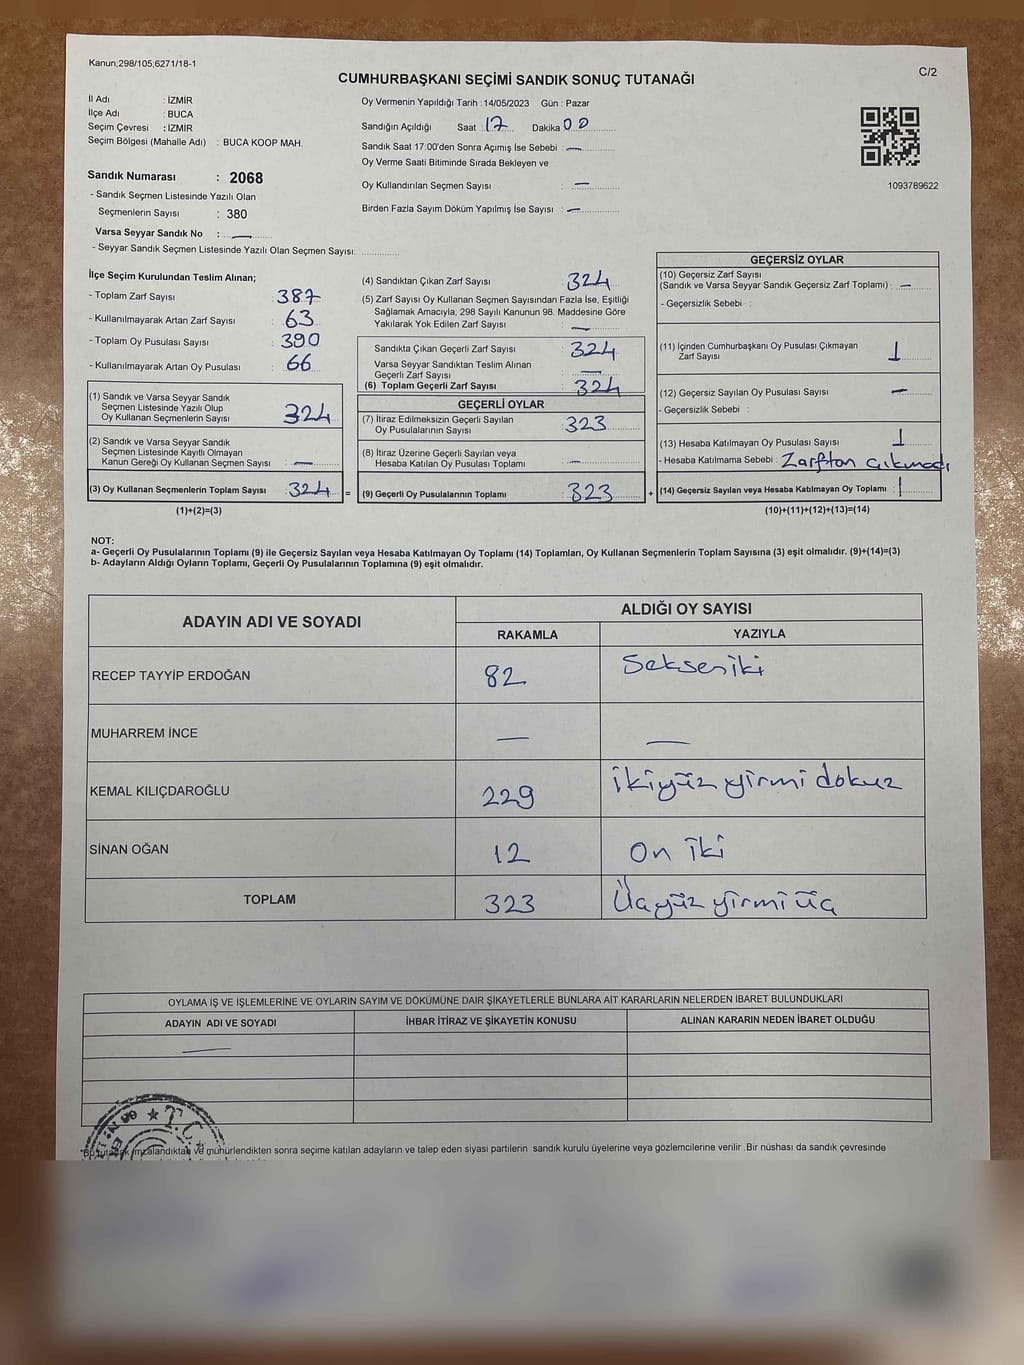 Kanun;298/105;6271/18-1
C/2
CUMHURBAŞKANI SEÇİMİ SANDIK SONUÇ TUTANAĞI
İl Adı : İZMİR
İlçe Adı : BUCA
Seçim Çevresi : İZMİR
Seçim Bölgesi (Mahalle Adı) : BUCA KOOP MAH.
Sandık Numarası : 2068
- Sandık Seçmen Listesinde Yazılı Olan
Seçmenlerin Sayısı : 380
Varsa Seyyar Sandık No : —
- Seyyar Sandık Seçmen Listesinde Yazılı Olan Seçmen Sayısı:
Oy Vermenin Yapıldığı Tarih :14/05/2023 Gün : Pazar
Sandığın Açıldığı Saat 17 Dakika 00
Sandık Saat 17:00'den Sonra Açımış İse Sebebi : —
Oy Verme Saati Bitiminde Sırada Bekleyen ve
Oy Kullandırılan Seçmen Sayısı : —
Birden Fazla Sayım Döküm Yapılmış İse Sayısı : —
1093789622
İlçe Seçim Kurulundan Teslim Alınan;
- Toplam Zarf Sayısı : 387
- Kullanılmayarak Artan Zarf Sayısı : 63
- Toplam Oy Pusulası Sayısı : 390
- Kullanılmayarak Artan Oy Pusulası : 66
(1) Sandık ve Varsa Seyyar Sandık
Seçmen Listesinde Yazılı Olup
Oy Kullanan Seçmenlerin Sayısı : 324
(2) Sandık ve Varsa Seyyar Sandık
Seçmen Listesinde Kayıtlı Olmayan
Kanun Gereği Oy Kullanan Seçmen Sayısı : —
(3) Oy Kullanan Seçmenlerin Toplam Sayısı : 324 =
(1)+(2)=(3)
(4) Sandıktan Çıkan Zarf Sayısı : 324
(5) Zarf Sayısı Oy Kullanan Seçmen Sayısından Fazla İse, Eşitliği
Sağlamak Amacıyla; 298 Sayılı Kanunun 98. Maddesine Göre
Yakılarak Yok Edilen Zarf Sayısı : —
Sandıkta Çıkan Geçerli Zarf Sayısı : 324
Varsa Seyyar Sandıktan Teslim Alınan
Geçerli Zarf Sayısı : —
(6) Toplam Geçerli Zarf Sayısı : 324
GEÇERLİ OYLAR
(7) İtiraz Edilmeksizin Geçerli Sayılan
Oy Pusulalarının Sayısı : 323
(8) İtiraz Üzerine Geçerli Sayılan veya
Hesaba Katılan Oy Pusulası Toplamı : —
(9) Geçerli Oy Pusulalarının Toplamı : 323 +
GEÇERSİZ OYLAR
(10) Geçersiz Zarf Sayısı
(Sandık ve Varsa Seyyar Sandık Geçersiz Zarf Toplamı) : —
- Geçersizlik Sebebi :
(11) İçinden Cumhurbaşkanı Oy Pusulası Çıkmayan
Zarf Sayısı : 1
(12) Geçersiz Sayılan Oy Pusulası Sayısı : —
- Geçersizlik Sebebi :
(13) Hesaba Katılmayan Oy Pusulası Sayısı : 1
- Hesaba Katılmama Sebebi : Zarftan çıkmadı
(14) Geçersiz Sayılan veya Hesaba Katılmayan Oy Toplamı : 1
(10)+(11)+(12)+(13)=(14)
NOT:
a- Geçerli Oy Pusulalarının Toplamı (9) ile Geçersiz Sayılan veya Hesaba Katılmayan Oy Toplamı (14) Toplamları, Oy Kullanan Seçmenlerin Toplam Sayısına (3) eşit olmalıdır. (9)+(14)=(3)
b- Adayların Aldığı Oyların Toplamı, Geçerli Oy Pusulalarının Toplamına (9) eşit olmalıdır.
ADAYIN ADI VE SOYADI ALDIĞI OY SAYISI
RAKAMLA YAZIYLA
RECEP TAYYİP ERDOĞAN 82 Sekseniki
MUHARREM İNCE — —
KEMAL KILIÇDAROĞLU 229 İkiyüz yirmi dokuz
SİNAN OĞAN 12 On iki
TOPLAM 323 Üçyüz yirmi üç
OYLAMA İŞ VE İŞLEMLERİNE VE OYLARIN SAYIM VE DÖKÜMÜNE DAİR ŞİKAYETLERLE BUNLARA AİT KARARLARIN NELERDEN İBARET BULUNDUKLARI
ADAYIN ADI VE SOYADI İHBAR İTİRAZ VE ŞİKAYETİN KONUSU ALINAN KARARIN NEDEN İBARET OLDUĞU
—
T.C.
*Bu tutanak imzalandıktan ve mühürlendikten sonra seçime katılan adayların ve talep eden siyasi partilerin sandık kurulu üyelerine veya gözlemcilerine verilir .Bir nüshası da sandık çevresinde